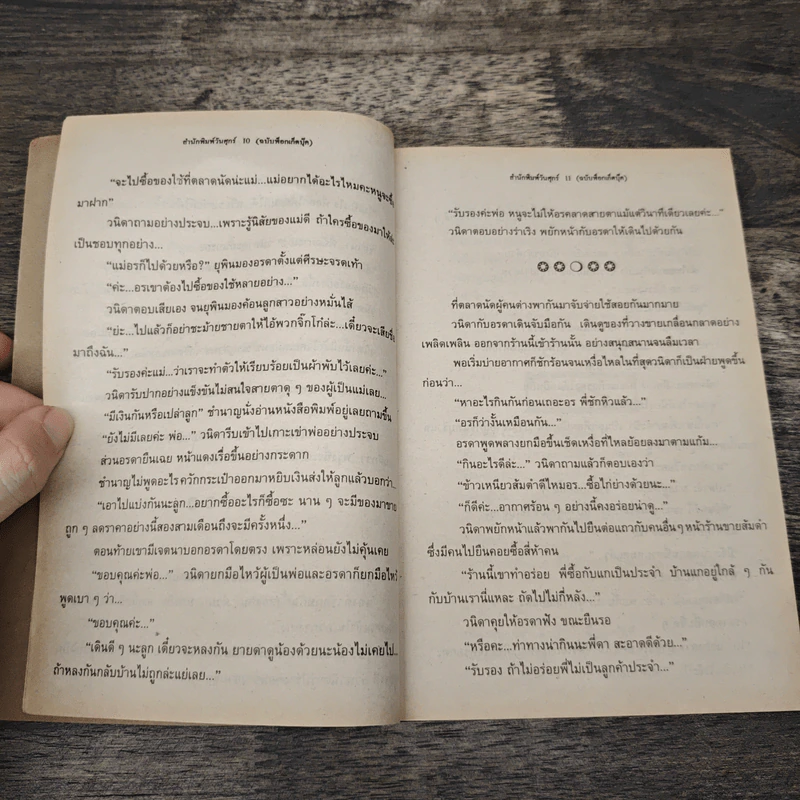 สำนักพิมพ์วันศุกร์ 10 (ฉบับพ็อกเก็ตบุ๊ค)
“จะไปซื้อของใช้ที่ตลาดนัดน่ะแม่...แม่อยากได้อะไรไหมคะหนูจะซื้อ
มาฝาก”
วนิดาถามอย่างประจบ...เพราะรู้นิสัยของแม่ดี ถ้าใครซื้อของมาให้ล่ะ
เป็นชอบทุกอย่าง...
“แม่อรก็ไปด้วยหรือ?” ยุพินมองอรดาตั้งแต่ศีรษะจรดเท้า
“ค่ะ...อรเขาต้องไปซื้อของใช้หลายอย่าง...”
วนิดาตอบเสียเอง จนยุพินมองค้อนลูกสาวอย่างหมั่นไส้
“ย่ะ...ไปแล้วก็อย่าชะม้ายชายตาให้ไอ้พวกจิ๊กโก๋ล่ะ...เดี๋ยวจะเสียชื่อ
มาถึงฉัน...”
“รับรองค่ะแม่...ว่าเราจะทำตัวให้เรียบร้อยเป็นผ้าพับไว้เลยค่ะ...”
วนิดารับปากอย่างแข็งขันไม่สนใจสายตาดุ ๆ ของผู้เป็นแม่เลย...
“มีเงินกันหรือเปล่าลูก” ชำนาญนั่งอ่านหนังสือพิมพ์อยู่เลยถามขึ้น
“ยังไม่มีเลยค่ะ พ่อ...” วนิดารีบเข้าไปเกาะเข่าพ่ออย่างประจบ
ส่วนอรดายืนเฉย หน้าแดงเรื่อขึ้นอย่างกระดาก
ชำนาญไม่พูดอะไร ควักกระเป๋าออกมาหยิบเงินส่งให้ลูกแล้วบอกว่า...
“เอาไปแบ่งกันนะลูก...อยากซื้ออะไรก็ซื้อซะ นาน ๆ จะมีของมาขาย
ถูก ๆ ลดราคาอย่างนี้สองสามเดือนถึงจะมีครั้งหนึ่ง...”
ตอนท้ายเขามีเจตนาบอกอรดาโดยตรง เพราะหล่อนยังไม่คุ้นเคย
“ขอบคุณค่ะพ่อ...” วนิดายกมือไหว้ผู้เป็นพ่อและอรดาก็ยกมือไหว้
พูดเบา ๆ ว่า...
“ขอบคุณค่ะ...”
“เดินดี ๆ นะลูก เดี๋ยวจะหลงกัน ยายดาดูน้องด้วยนะน้องไม่เคยไป...
ถ้าหลงกันกลับบ้านไม่ถูกล่ะแย่เลย...”
สำนักพิมพ์วันศุกร์ 11 (ฉบับพ็อกเก็ตบุ๊ค)
“รับรองค่ะพ่อ หนูจะไม่ให้อรคลาดสายตาแม้แต่วินาทีเดียวเลยค่ะ...”
วนิดาตอบอย่างร่าเริง พยักหน้ากับอรดาให้เดินไปด้วยกัน
ที่ตลาดนัดผู้คนต่างพากันมาจับจ่ายใช้สอยกันมากมาย
วนิดากับอรดาเดินจับมือกัน เดินดูของที่วางขายเกลื่อนกลาดอย่าง
เพลิดเพลิน ออกจากร้านนี้เข้าร้านนั้น อย่างสนุกสนานจนลืมเวลา
พอเริ่มบ่ายอากาศก็ชักร้อนจนเหงื่อไหลในที่สุดวนิดาก็เป็นฝ่ายพูดขึ้น
ก่อนว่า...
“หาอะไรกินกันก่อนเถอะอร พี่ชักหิวแล้ว...”
“อรก็ว่างั้นเหมือนกัน...”
อรดาพูดพลางยกมือขึ้นเช็ดเหงื่อที่ไหลย้อยลงมาตามแก้ม...
“กินอะไรดีล่ะ...” วนิดาถามแล้วก็ตอบเองว่า
“ข้าวเหนียวส้มตำดีไหมอร...ซื้อไก่ย่างด้วยนะ...”
“ก็ดีค่ะ...อากาศร้อน ๆ อย่างนี้คงอร่อยน่าดู...”
วนิดาพยักหน้าแล้วพากันไปยืนต่อแถวกับคนอื่นๆหน้าร้านขายส้มตำ
ซึ่งมีคนไปยืนคอยซื้อสี่ห้าคน
“ร้านนี้เขาทำอร่อย พี่ซื้อกับแกเป็นประจำ บ้านแกอยู่ใกล้ ๆ กัน
กับบ้านเรานี่แหละ ถัดไปไม่กี่หลัง...”
วนิดาคุยให้อรดาฟัง ขณะยืนรอ
“หรือคะ...ท่าทางน่ากินนะพี่ดา สะอาดดีด้วย...”
“รับรอง ถ้าไม่อร่อยพี่ไม่เป็นลูกค้าประจำ...”